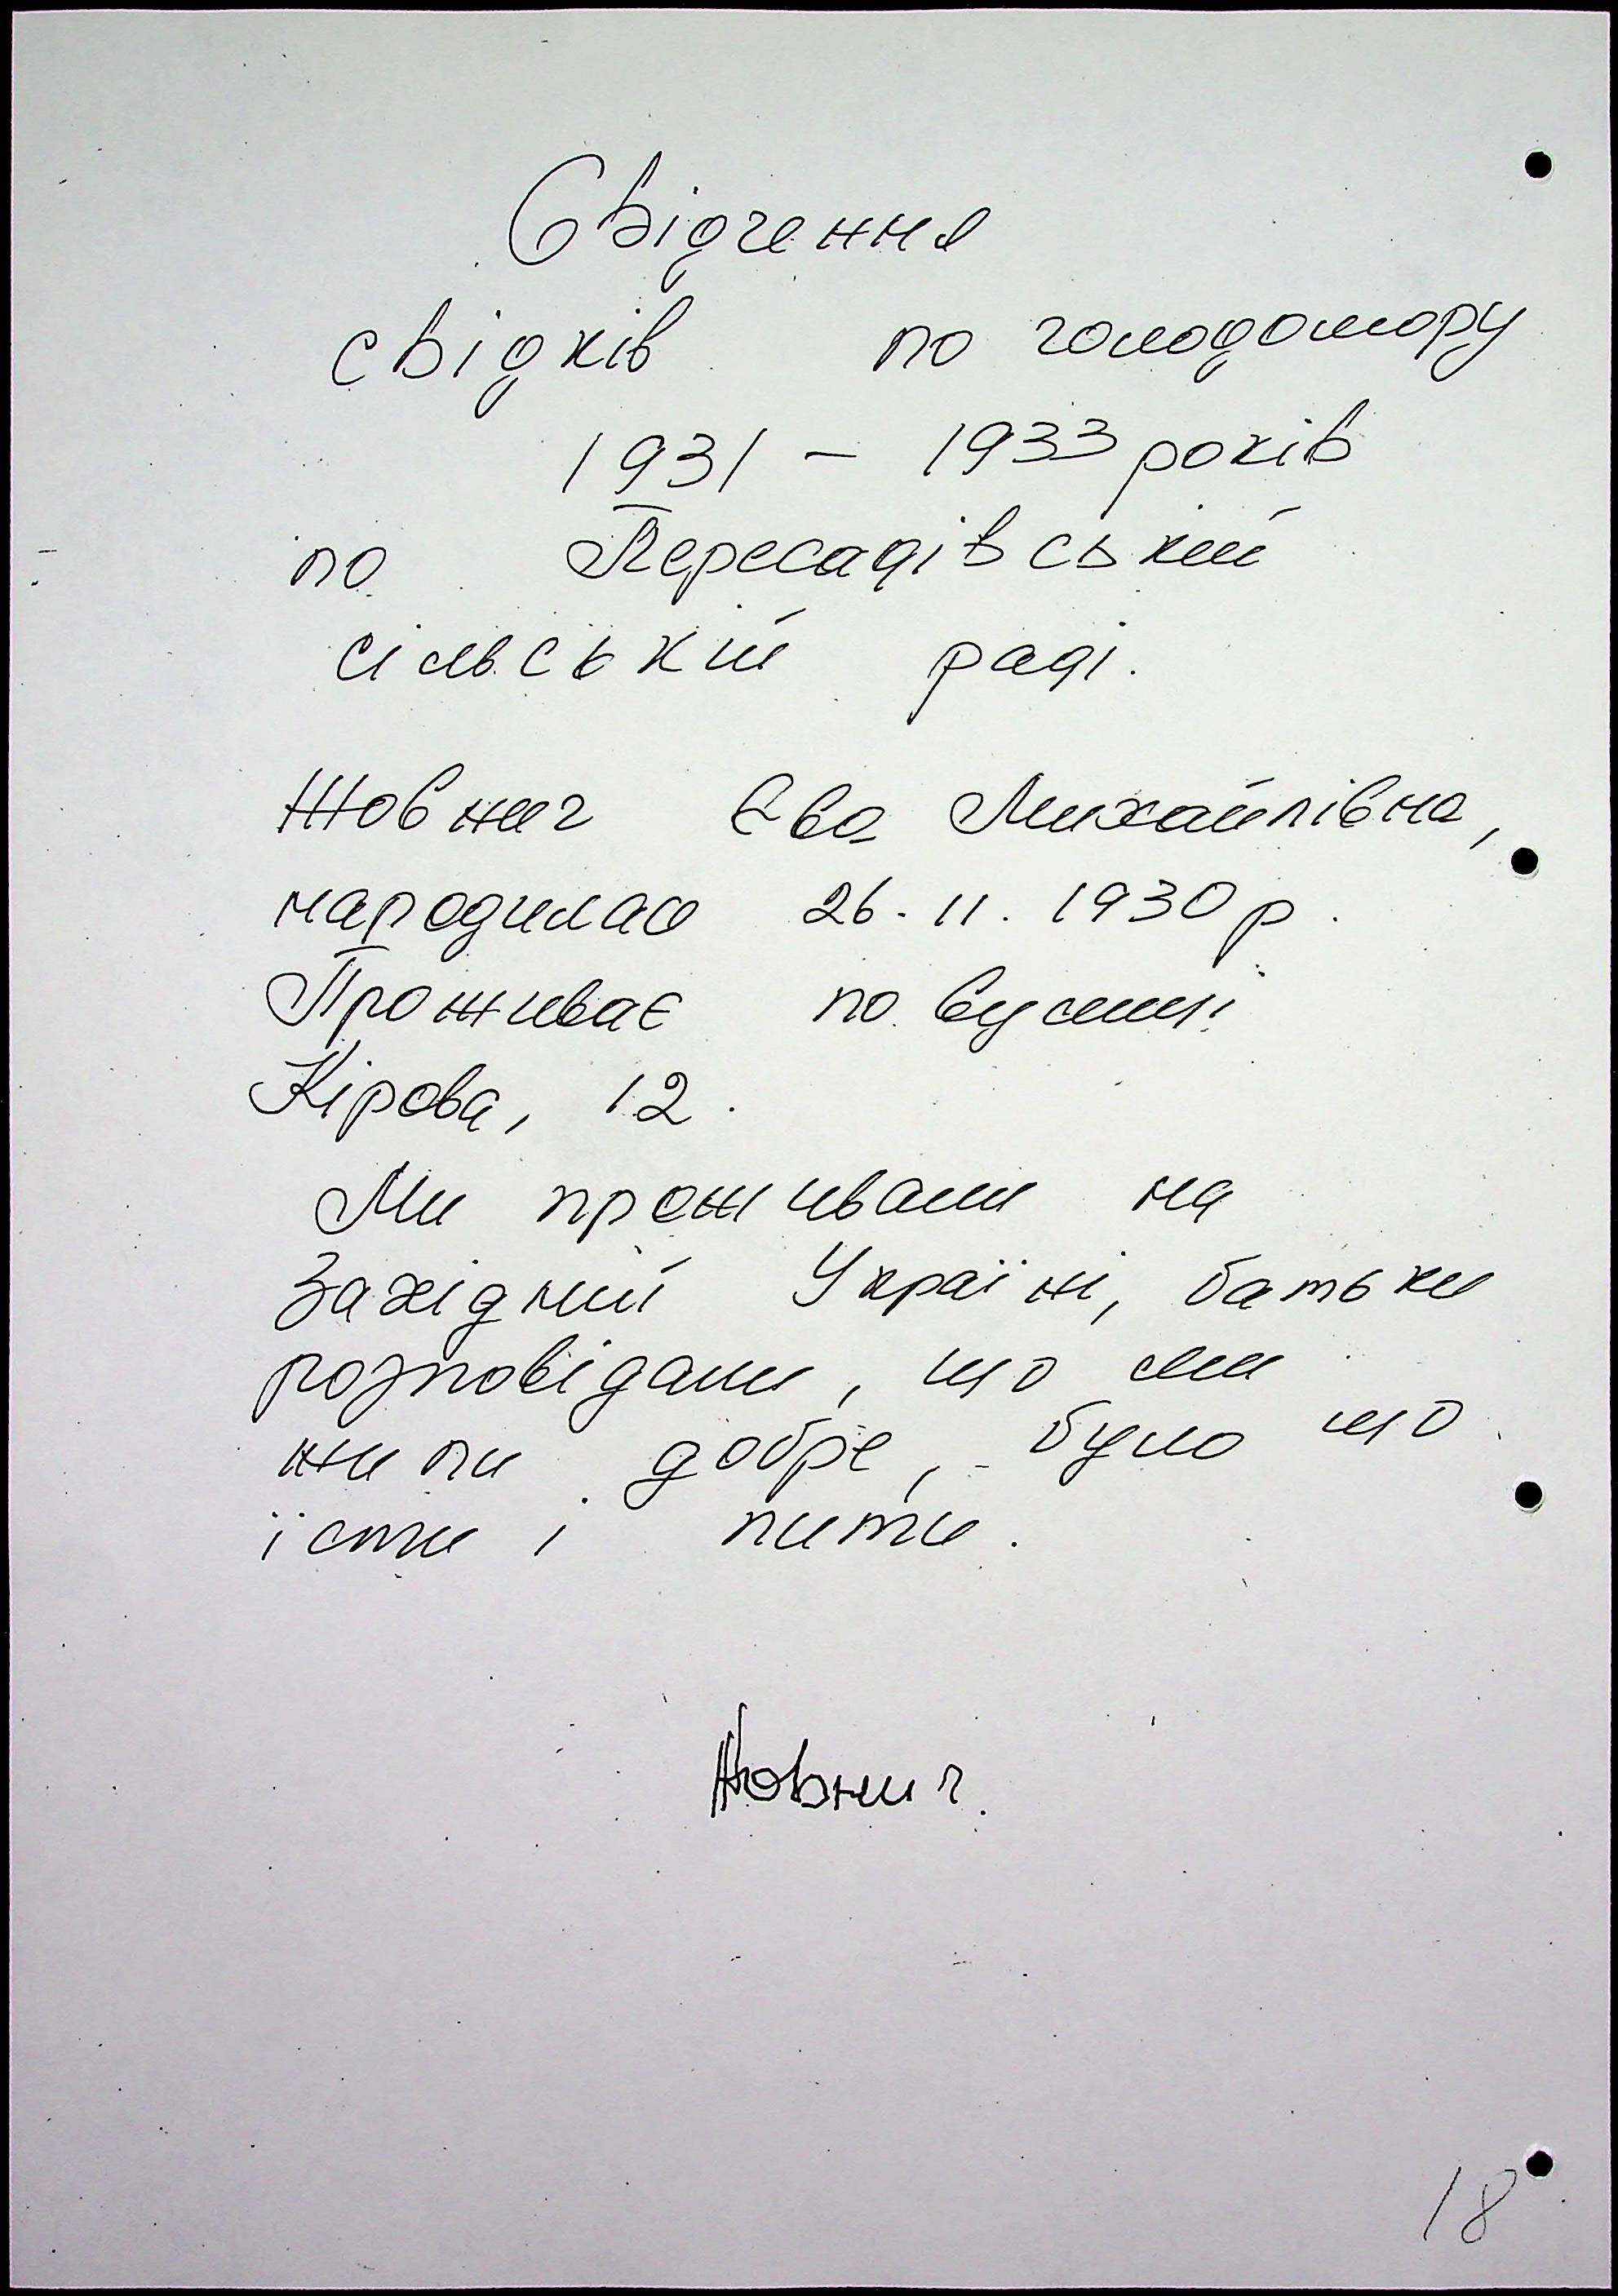 Свідчення
свідків по голодомору
1931 – 1933 років
по Пересадівській
сільській раді.
Жовнич Єва Михайлівна,
народилась 26.11.1930 р.
Проживає по вулиці
Кірова, 12.
Ми проживали на
Західній Україні, батьки
розповідали, що ми
жили добре, було що
їсти і пити.
Жовнич.
18